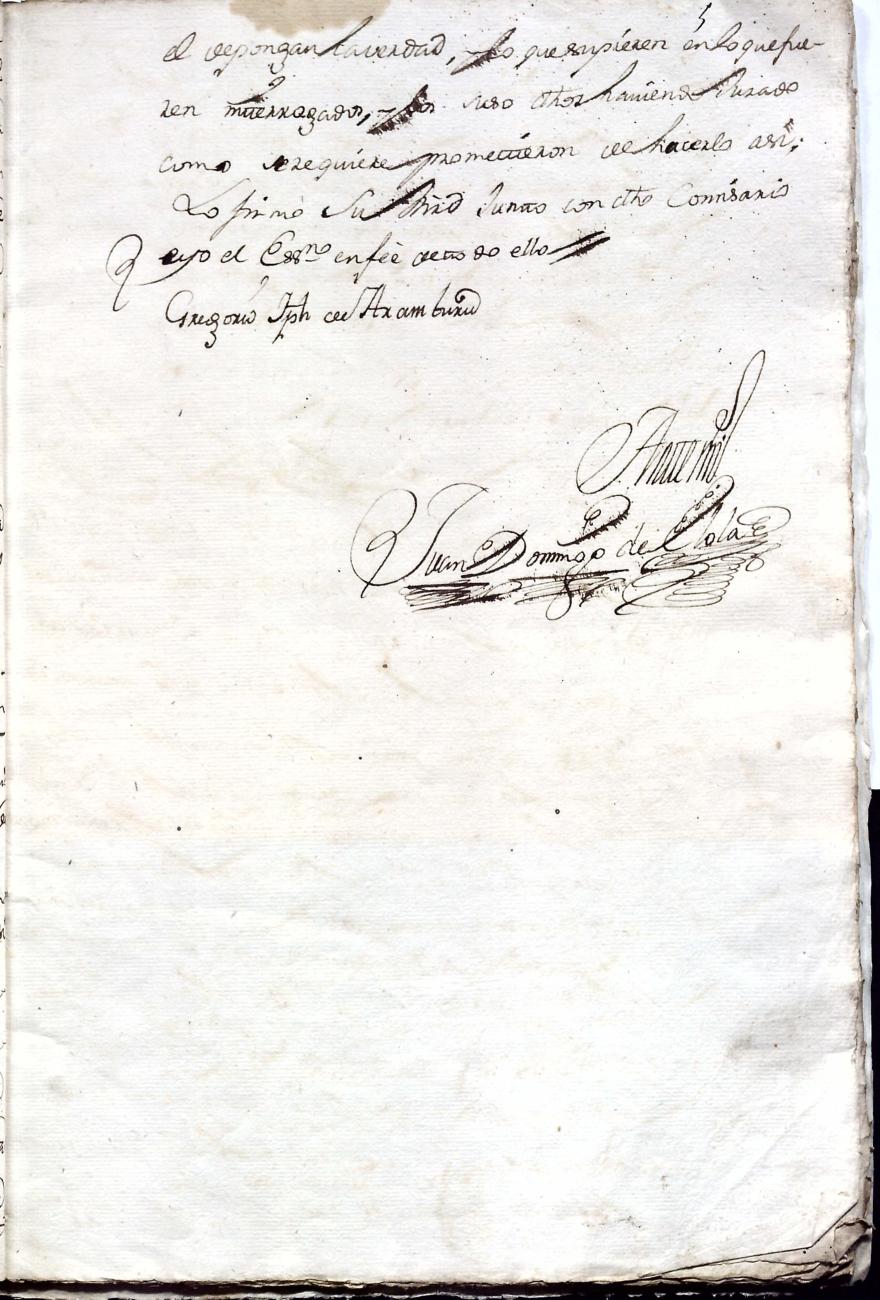 el depongan la verdad, y lo que supieren en lo que fue-
ren interrogados, y los suso dthos haviendo Jurado
como se requiere prometieron de hacerlo asi;
Lo firmó Su Mrd Juntto con dtho Comisario
e yo el Essno en feè de todo ello
Gregorio Jph de Aramburu
Antte mi
Juan Domingo de